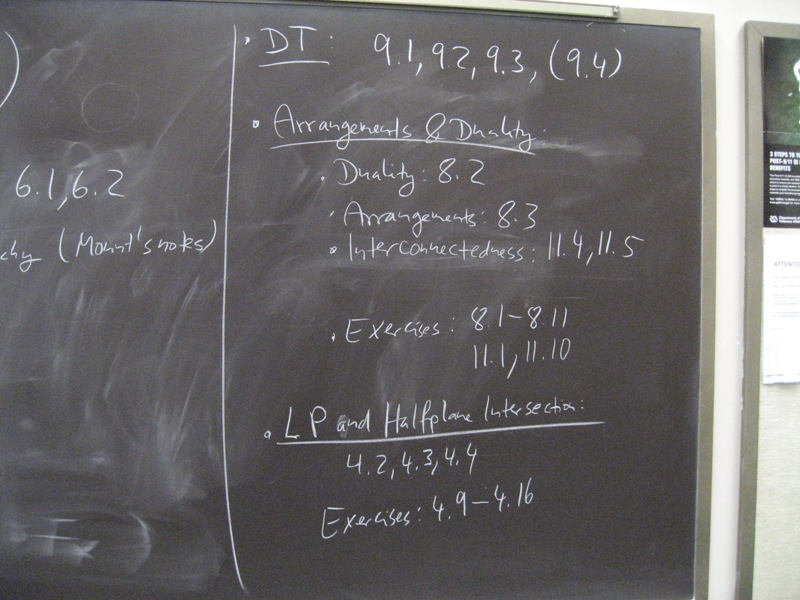 )
6.1, 6.2
chy (Mount's notes)
• DT: 9.1, 9.2, 9.3, (9.4)
• Arrangements & Duality:
• Duality: 8.2
• Arrangements: 8.3
• Interconnectedness: 11.4, 11.5
• Exercises: 8.1-8.11
11.1, 11.10
• LP and Halfplane Intersection:
4.2, 4.3, 4.4
Exercises: 4.9-4.16
3 STEPS TO Y
POST-9/11 GI
BENEFITS
ATTENTIO